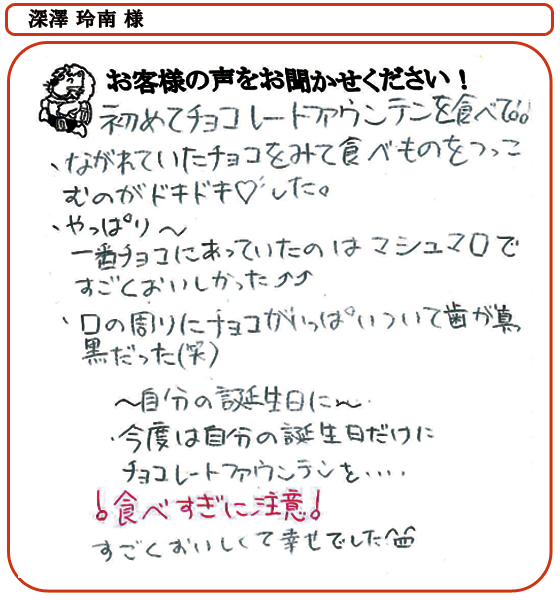 深澤 玲南 様
お客様の声をお聞かせください！
初めてチョコレートファウンテンを食べて。。
、ながれていたチョコをみて食べものをつっこ
むのがドキドキ♡した。
、やっぱり〜
一番チョコにあっていたのはマシュマロで
すごくおいしかった⤴⤴
、口の周りにチョコがいっぱいついて歯が真っ
黒だった(笑)
〜自分の誕生日に〜
・今度は自分の誕生日だけに
チョコレートファウンテンを・・・・
!食べすぎに注意!
すごくおいしくて幸せでした